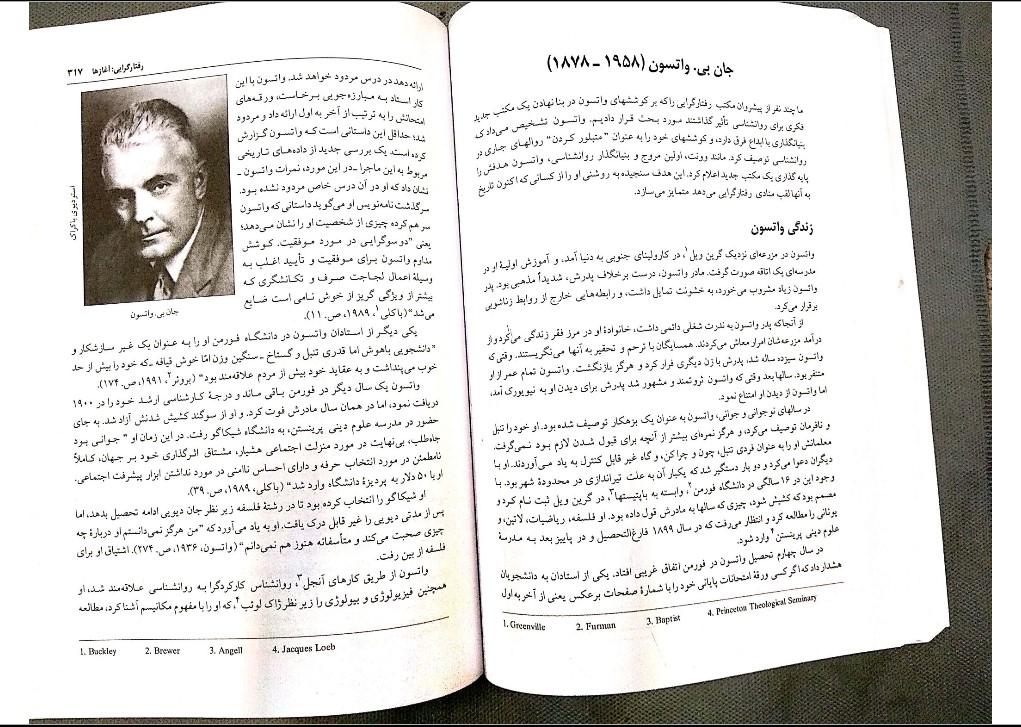 جان بی. واتسون (۱۹۵۸ ـ ۱۸۷۸)
ما چند نفر از پیشروان مکتب رفتارگرایی را که بر کوششهای واتسون در بنا نهادن یک مکتب جدید
فکری برای روانشناسی تأثیر گذاشتند مورد بحث قرار دادیم. واتسون تشخیص می‌داد که
بنیانگذاری با ابداع فرق دارد، و کوششهای خود را به عنوان "متبلور کردن" روالهای جاری در
روانشناسی توصیف کرد. مانند وونت، اولین مروج و بنیانگذار روانشناسی، واتسون هدفش را
پایه گذاری یک مکتب جدید اعلام کرد. این هدف سنجیده به روشنی او را از کسانی که اکنون تاریخ
به آنها لقب منادی رفتارگرایی می‌دهد متمایز می‌سازد.
زندگی واتسون
واتسون در مزرعه‌ای نزدیک گرین ویل۱، در کارولینای جنوبی به دنیا آمد، و آموزش اولیهٔ او در
مدرسه‌ای یک اتاقه صورت گرفت. مادر واتسون، درست برخلاف پدرش، شدیداً مذهبی بود. پدر
واتسون زیاد مشروب می‌خورد، به خشونت تمایل داشت، و رابطه‌هایی خارج از روابط زناشویی
برقرار می‌کرد.
از آنجا که پدر واتسون به ندرت شغلی دائمی داشت، خانوادهٔ او در مرز فقر زندگی می‌کرد و از
درآمد مزرعه‌شان امرار معاش می‌کردند. همسایگان با ترحم و تحقیر به آنها می‌نگریستند. وقتی که
واتسون سیزده ساله شد، پدرش با زن دیگری فرار کرد و هرگز بازنگشت. واتسون تمام عمر از او
متنفر بود. سالها بعد وقتی که واتسون ثروتمند و مشهور شد پدرش برای دیدن او به نیویورک آمد،
اما واتسون از دیدن او امتناع نمود.
در سالهای نوجوانی و جوانی، واتسون به عنوان یک بزهکار توصیف شده بود. او خود را تنبل
و نافرمان توصیف می‌کرد، و هرگز نمره‌ای بیشتر از آنچه برای قبول شدن لازم بود نمی‌گرفت.
معلمانش او را به عنوان فردی تنبل، چون و چراکن، و گاه غیر قابل کنترل به یاد می‌آوردند. او با
دیگران دعوا می‌کرد و دو بار دستگیر شد که یکبار آن به علت تیراندازی در محدودهٔ شهر بود. با
وجود این در ۱۶ سالگی در دانشگاه فورمن۲، وابسته به باپتیستها۳، در گرین ویل ثبت نام کرد و
مصمم بود که کشیش شود، چیزی که سالها به مادرش قول داده بود. او فلسفه، ریاضیات، لاتین، و
یونانی را مطالعه کرد و انتظار می‌رفت که در سال ۱۸۹۹ فارغ‌التحصیل و در پاییز بعد به مدرسهٔ
علوم دینی پرینستن۴ وارد شود.
در سال چهارم تحصیل واتسون در فورمن اتفاق غریبی افتاد. یکی از استادان به دانشجویان
هشدار داد که اگر کسی ورقهٔ امتحانات پایانی خود را با شمارهٔ صفحات برعکس یعنی از آخر به اول
1. Greenville 2. Furman 3. Baptist 4. Princeton Theological Seminary
رفتارگرایی: آغازها ۳۱۷
ارائه دهد در درس مردود خواهد شد. واتسون با این
کار استاد به مبارزه‌جویی برخاست، ورقه‌های
امتحانش را به ترتیب از آخر به اول ارائه داد و مردود
شد؛ حداقل این داستانی است که واتسون گزارش
کرده است. یک بررسی جدید از داده‌های تاریخی
مربوط به این ماجرا ـ در این مورد، نمرات واتسون ـ
نشان داد که او در آن درس خاص مردود نشده بود.
سرگذشت نامه‌نویس او می‌گوید داستانی که واتسون
سر هم کرده چیزی از شخصیت او را نشان می‌دهد؛
یعنی "دو سوگرایی در مورد موفقیت. کوشش
مداوم واتسون برای موفقیت و تأیید اغلب به
وسیلهٔ اعمال لجاجت صرف و تکانشگری که
بیشتر از ویژگی گریز از خوش نامی است ضایع
می‌شد" (باکلی۱، ۱۹۸۹، ص. ۱۱).
استر دیوی باکراک
جان بی. واتسون
یکی دیگر از استادان واتسون در دانشگاه فورمن او را به عنوان یک غیر سازشکار و
"دانشجویی باهوش اما قدری تنبل و گستاخ ـ سنگین وزن امّا خوش قیافه ـ که خود را بیش از حد
خوب می‌پنداشت و به عقاید خود بیش از مردم علاقه‌مند بود" (بروئر۲، ۱۹۹۱، ص. ۱۷۴).
واتسون یک سال دیگر در فورمن باقی ماند و درجهٔ کارشناسی ارشد خود را در ۱۹۰۰
دریافت نمود، اما در همان سال مادرش فوت کرد. و او از سوگند کشیش شدنش آزاد شد. به جای
حضور در مدرسه علوم دینی پرینستن، به دانشگاه شیکاگو رفت. در این زمان او "جوانی بود
جاه‌طلب، بی‌نهایت در مورد منزلت اجتماعی هشیار، مشتاق اثرگذاری خود بر جهان، کاملاً
نامطمئن در مورد انتخاب حرفه و دارای احساس ناامنی در مورد نداشتن ابزار پیشرفت اجتماعی.
او با ۵۰ دلار به پردیزهٔ دانشگاه وارد شد" (باکلی، ۱۹۸۹، ص. ۳۹).
او شیکاگو را انتخاب کرده بود تا در رشتهٔ فلسفه زیر نظر جان دیویی ادامه تحصیل بدهد، اما
پس از مدتی دیویی را غیر قابل درک یافت. او به یاد می‌آورد که "من هرگز نمی‌دانستم او دربارهٔ چه
چیزی صحبت می‌کند و متأسفانه هنوز هم نمی‌دانم" (واتسون، ۱۹۳۶، ص. ۲۷۴). اشتیاق او برای
فلسفه از بین رفت.
واتسون از طریق کارهای آنجل۳، روانشناس کارکردگرا به روانشناسی علاقه‌مند شد، او
همچنین فیزیولوژی و بیولوژی را زیر نظر ژاک لوئب۴، که او را با مفهوم مکانیسم آشنا کرد، مطالعه
1. Buckley 2. Brewer 3. Angell 4. Jacques Loeb